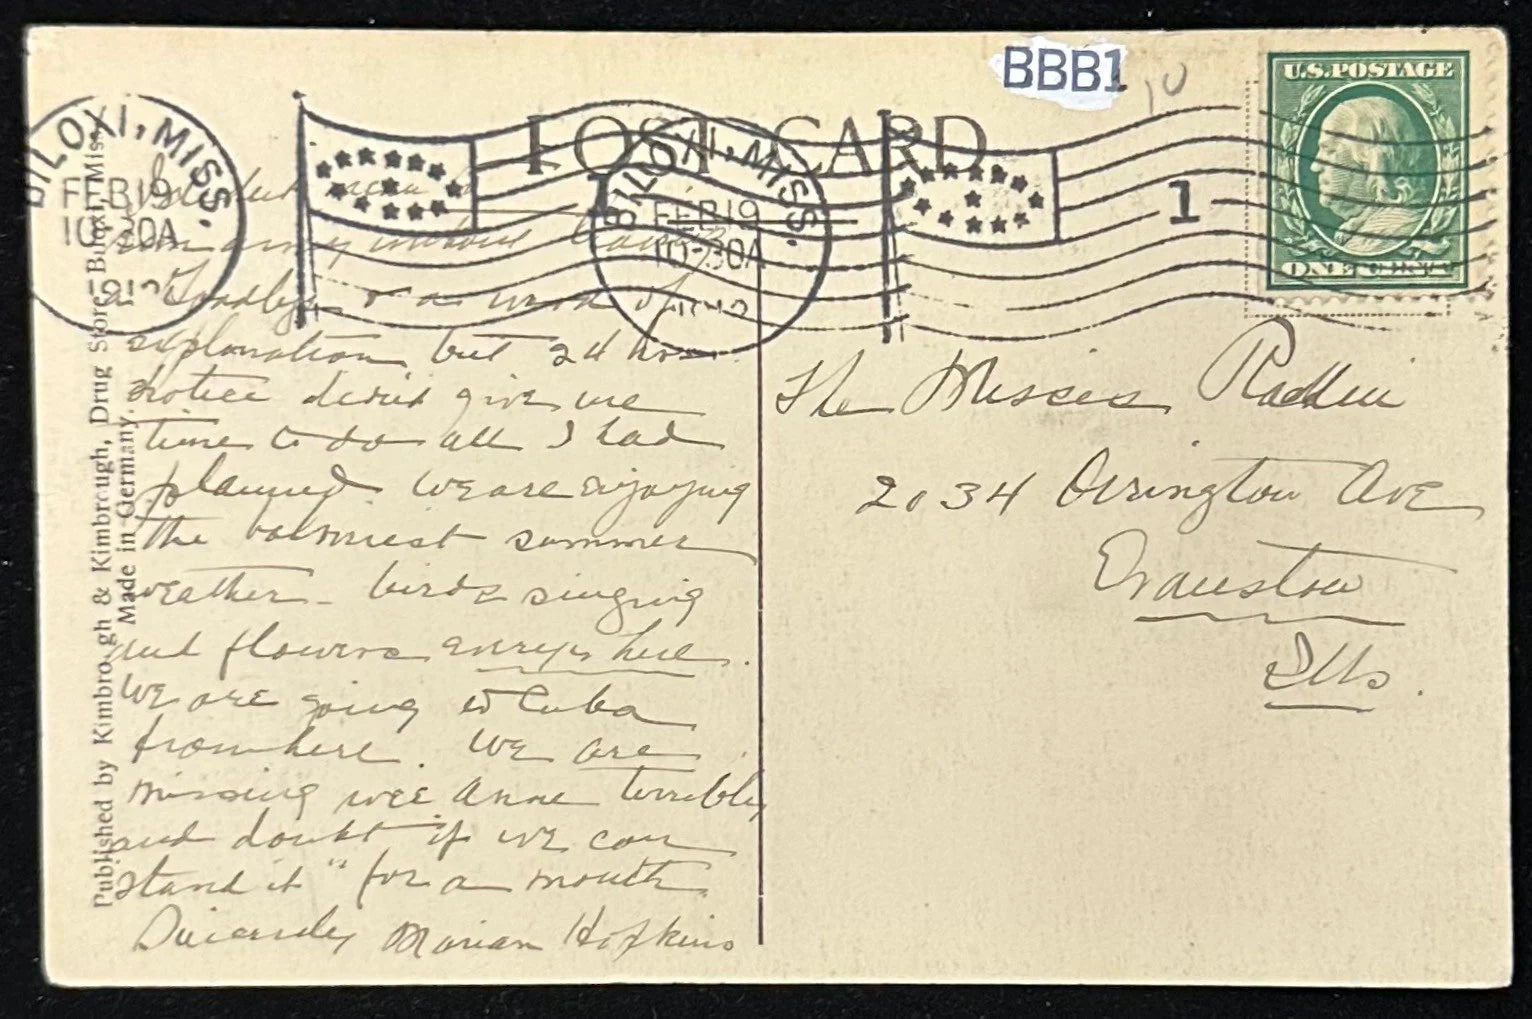 BBB1
10
U.S.POSTAGE
POST CARD
BILOXI, MISS.
FEB 19
10-30A
BILOXI, MISS.
FEB 19
10-30A
1
did
away without
a Goodbye & a word of
explanation but 24 hrs
notice didn't give me
time to do all I had
planned. We are enjoying
the balmiest summer
weather - birds singing
and flowers everywhere.
We are going to Cuba
from here. We are
missing wee Anne terribly
and doubt if we can
"stand it" for a month.
Sincerely Marian Hopkins
The Misses
2034 Orrington Ave
Evanston
Ills.
Published by Kimbrough & Kimbrough, Drug Store, Biloxi, Miss.
Made in Germany.